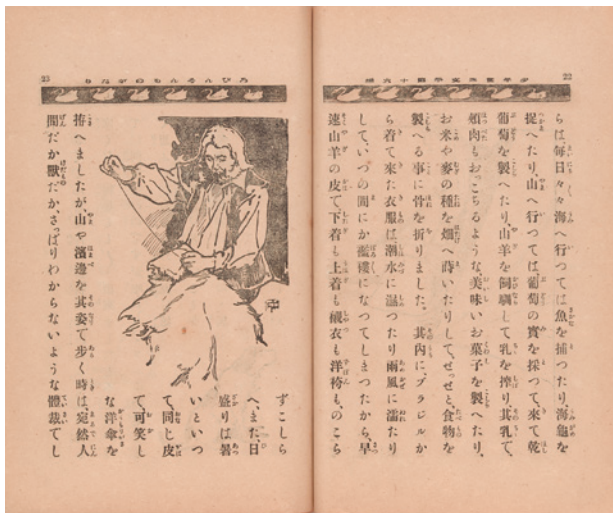 22
らは毎日々々海へ行つては魚を捕つたり、海龜を
捉へたり、山へ行つては葡萄の實を採つて、來て乾
葡萄を製へたり、山羊を飼馴して乳を搾り其乳で、
頰肉もおつこちるような、美味いお菓子を製へたり、
お米や麥の種を畑へ蒔いたりして、せつせと食物を
製へる事に骨を折りました。其内に、ブラジルか
ら着て來た衣服は潮水に濕つたり雨風に濡たり
して、いつの間にか襤褸になつてしまつたから、早
速山羊の皮で下着も上着も襯衣も洋袴ものこら
23
ろびんそんものがたり
ずこしら
へ、また、日
盛りは暑
いといつ
て、同じ皮
で可笑し
な洋傘を
拵へましたが山や濱邊を其姿で歩く時は、宛然人
間だか獸だか、さつぱりわからないような體裁でし